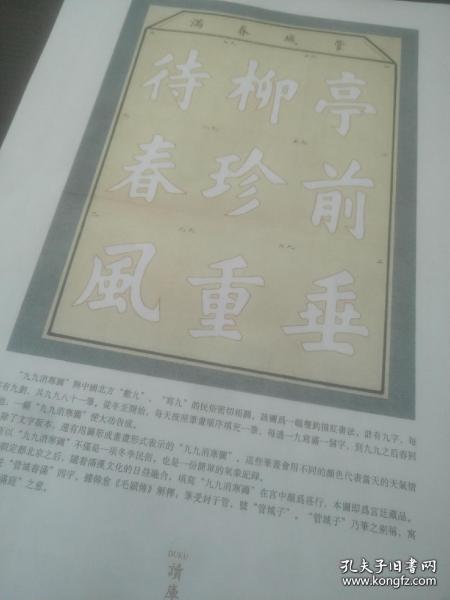 管城春滿
亭前垂
柳珍重
待春風
“九九消寒圖”與中國北方“數九”、“寫九”的民俗密切相關，該圖爲一幅雙鈎描紅書法，計有九字，每
字有九劃，共九九八十一筆，從冬至開始，每天按照筆畫順序填充一筆，每過一九寫滿一個字，到九九之後春到
，一幅“九九消寒圖”便大功告成。
除了文字版本，還有用圖形或畫畫形式表示的“九九消寒圖”，這些筆畫會用不同的顏色代表當天的天氣情
所以“九九消寒圖”不僅是一項冬季民俗，也是一份簡單的氣象記錄。
定都北京之后，隨着滿漢文化的日益融合，填寫“九九消寒圖”在宮中頗爲盛行，本圖即爲宮廷藏品。
“管城春滿”四字，據韓愈《毛穎傳》解釋：筆受封于管，號“管城子”，“管城子”乃筆之别稱，寓
滿庭”之意。
DUKU
讀庫
孔夫子旧书网
www.kongfz.com